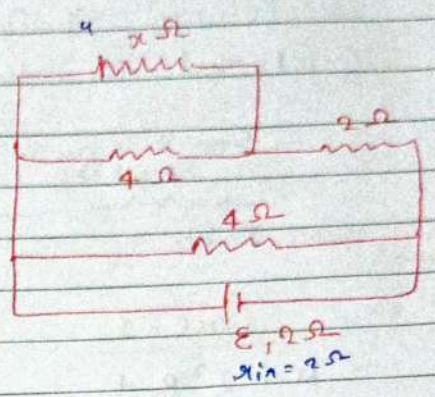 4
x Ω
4 Ω
2 Ω
4 Ω
ε, 2 Ω
rin = 2 Ω